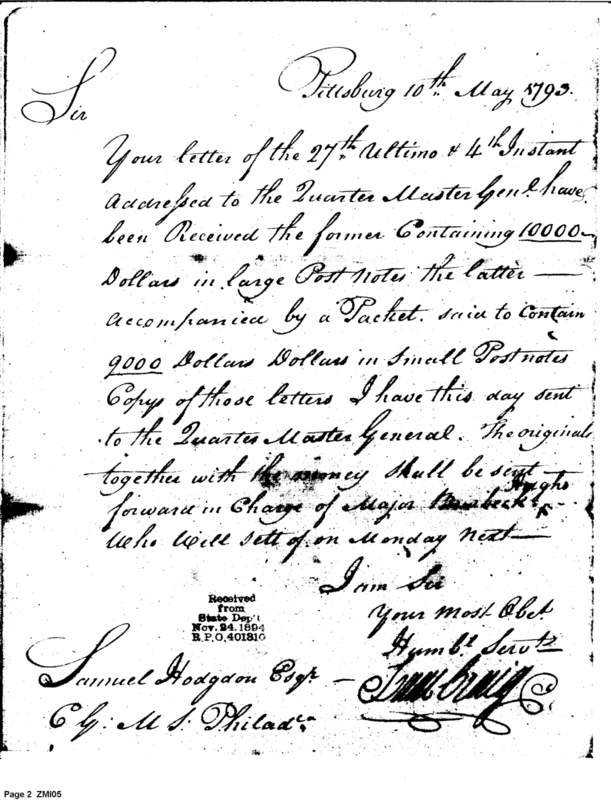 Pittsburg 10th May 1793.
Sir
Your letter of the 27th Ultimo & 4th Instant
Addressed to the Quarter Master Genl. have
been Received the former Containing 10000
Dollars in large Post notes the latter —
accompanied by a Packet. said to Contain
9000 Dollars Dollars in Small Post notes
Copys of those letters I have this day sent
to the Quarter Master General. The originals
together with the money shall be sent —
forward in Charge of Major Hughs
Who Will sett of on Monday Next —
I am Sir
Your most Obet
Humbl. Servt.
Isaac Craig
Received
from
State Dep't
Nov. 24. 1894
R.P.O. 401810
Samuel Hodgdon Esqr. —
M S. Philada.
Page 2 ZMI05